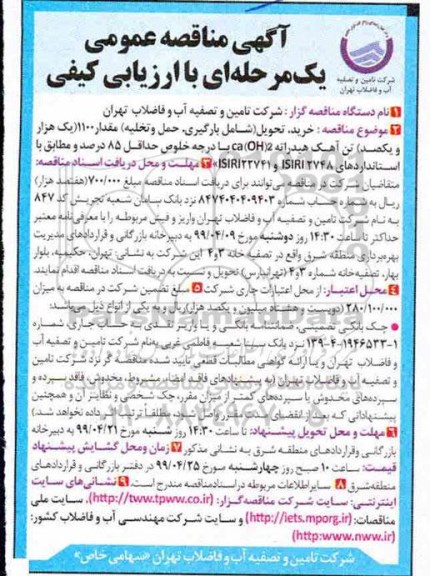 شرکت تامین و تصفیه
آب و فاضلاب تهران
آگهی مناقصه عمومی
یک‌مرحله‌ای با ارزیابی کیفی
۱ نام دستگاه مناقصه گزار: شرکت تامین و تصفیه آب و فاضلاب تهران
۲ موضوع مناقصه: خرید، تحویل(شامل بارگیری، حمل وتخلیه) مقدار۱۱۰۰(یک هزار
و یکصد) تن آهک هیدراته ca(OH)2 با درجه خلوص حداقل ۸۵ درصد و مطابق با
استانداردهای ISIRI ۲۷۴۸ و ISIRI۲۲۷۴۱» ۳ مهلت و محل دریافت اسناد مناقصه:
متقاضیان شرکت در مناقصه می‌توانند برای دریافت اسناد مناقصه مبلغ ۷۰۰/۰۰۰(هفتصد هزار)
ریال به شماره حساب شماره ۸۴۷۴۰۴۰۴۰۹۴۰۳ نزد بانک سامان شعبه تجریش کد ۸۴۷
به نام شرکت تامین و تصفیه آب و فاضلاب تهران واریز و فیش مربوطه را با معرفی‌نامه معتبر
حداکثر تا ساعت ۱۴:۳۰ روز دوشنبه مورخ ۹۹/۰۴/۰۹ به دبیرخانه بازرگانی و قراردادهای مدیریت
بهره‌برداری منطقه شرق واقع در تصفیه خانه ۳و۴ این شرکت به نشانی: تهران، حکیمیه، بلوار
بهار، تصفیه‌خانه شماره ۳و۴ (تهرانپارس) تحویل و نسبت به دریافت اسناد مناقصه اقدام نمایند.
۴ محل اعتبار: از محل اعتبارات جاری شرکت ۵ مبلغ تضمین شرکت در مناقصه به میزان
۲۸۰/۱۰۰/۰۰۰ (دویست و هشتاد میلیون و یکصد هزار)ریال به یکی از انواع ذیل می‌باشد:
● چک بانکی تضمینی، ضمانتنامه بانکی و یا واریز نقدی به حساب جاری شماره
۱۳۹-۴-۱۹۴۶۵۳۳-۱ نزد بانک سینا شعبه فاطمی غربی به‌نام شرکت تامین و تصفیه آب
و فاضلاب تهران و یا ارائه گواهی مطالبات قطعی تایید شده. مناقصه گر نزد شرکت تامین
و تصفیه آب و فاضلاب تهران (به پیشنهادهای فاقد امضا، مشروط، مخدوش، فاقد سپرده و
سپرده‌های مخدوش یا سپرده‌های کمتر از میزان مقرر، چک شخصی و نظایر آن و همچنین
پیشنهاداتی که بعد از انقضای مدت مقرر واصل شود، مطلقاً ترتیب اثر داده نخواهد شد)
۶ مهلت و محل تحویل پیشنهاد: تا ساعت ۱۴:۳۰ روز شنبه مورخ ۹۹/۰۴/۲۱ به دبیرخانه
بازرگانی وقراردادهای منطقه شرق به نشانی مذکور ۷ زمان ومحل گشایش پیشنهاد
قیمت: ساعت ۱۰ صبح روز چهارشنبه مورخ ۹۹/۰۴/۲۵ در دفتر بازرگانی و قراردادهای
منطقه شرق ۸ سایراطلاعات مربوطه دراسنادمناقصه مندرج است. ۹ نشانی‌های سایت
اینترنتی: سایت شرکت مناقصه‌گزار: (http://www.tpww.co.ir)، سایت ملی
مناقصات: (http://iets.mporg.ir) و سایت شرکت مهندسی آب و فاضلاب کشور:
(http:www.nww.ir)
شرکت تامین و تصفیه آب و فاضلاب تهران «سهامی خاص»